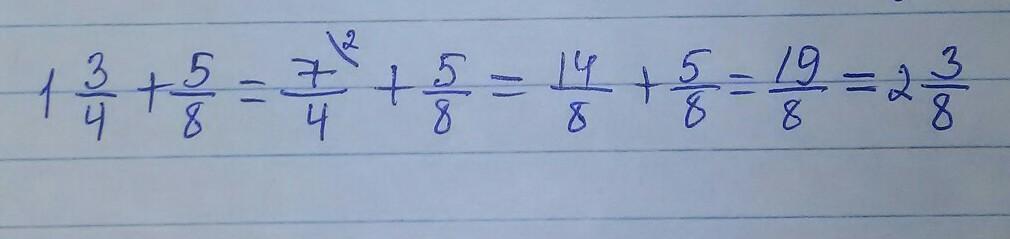 1 3/4 + 5/8 = 7\2/4 + 5/8 = 14/8 + 5/8 = 19/8 = 2 3/8